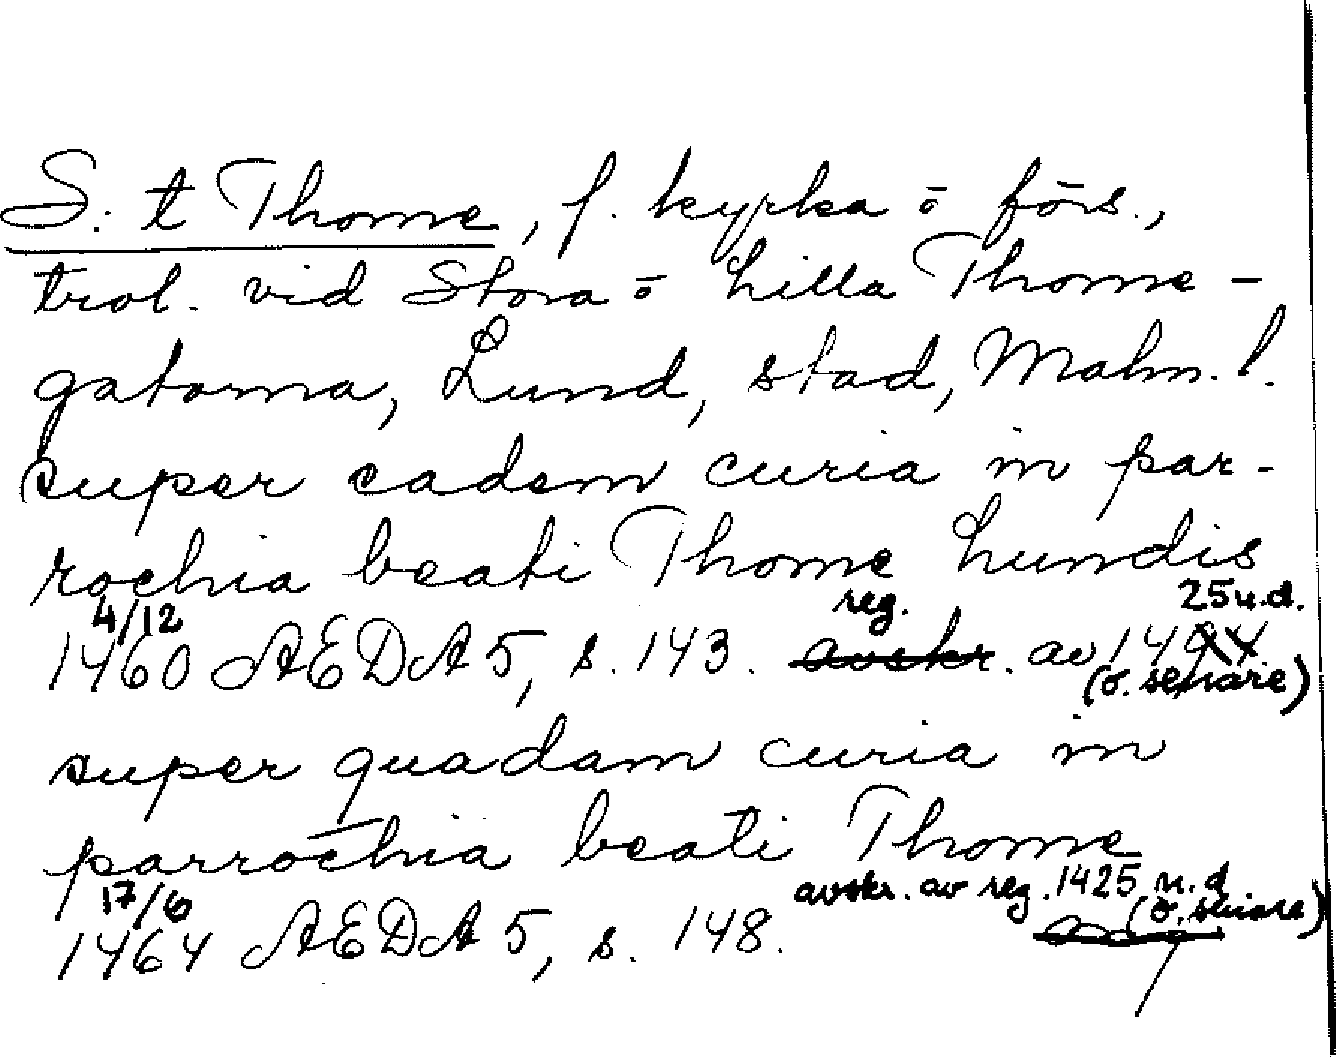 S:t Thome, f. kyrka ō förs.,
trol. vid Stora ō Lilla Thome-
gatorna, Lund, stad, Malm. l.
super eadem curia in par-
rochia beati Thome Lundis
4/12 reg. 25 u.d.
1460 ÆDA 5, s. 143. avskr. av 14
(o. senare)
super quadam curia in
parrochia beati Thome
17/6 avskr. av reg. 1425 u. d.
(o. senare)
1464 ÆDA 5, s. 148.